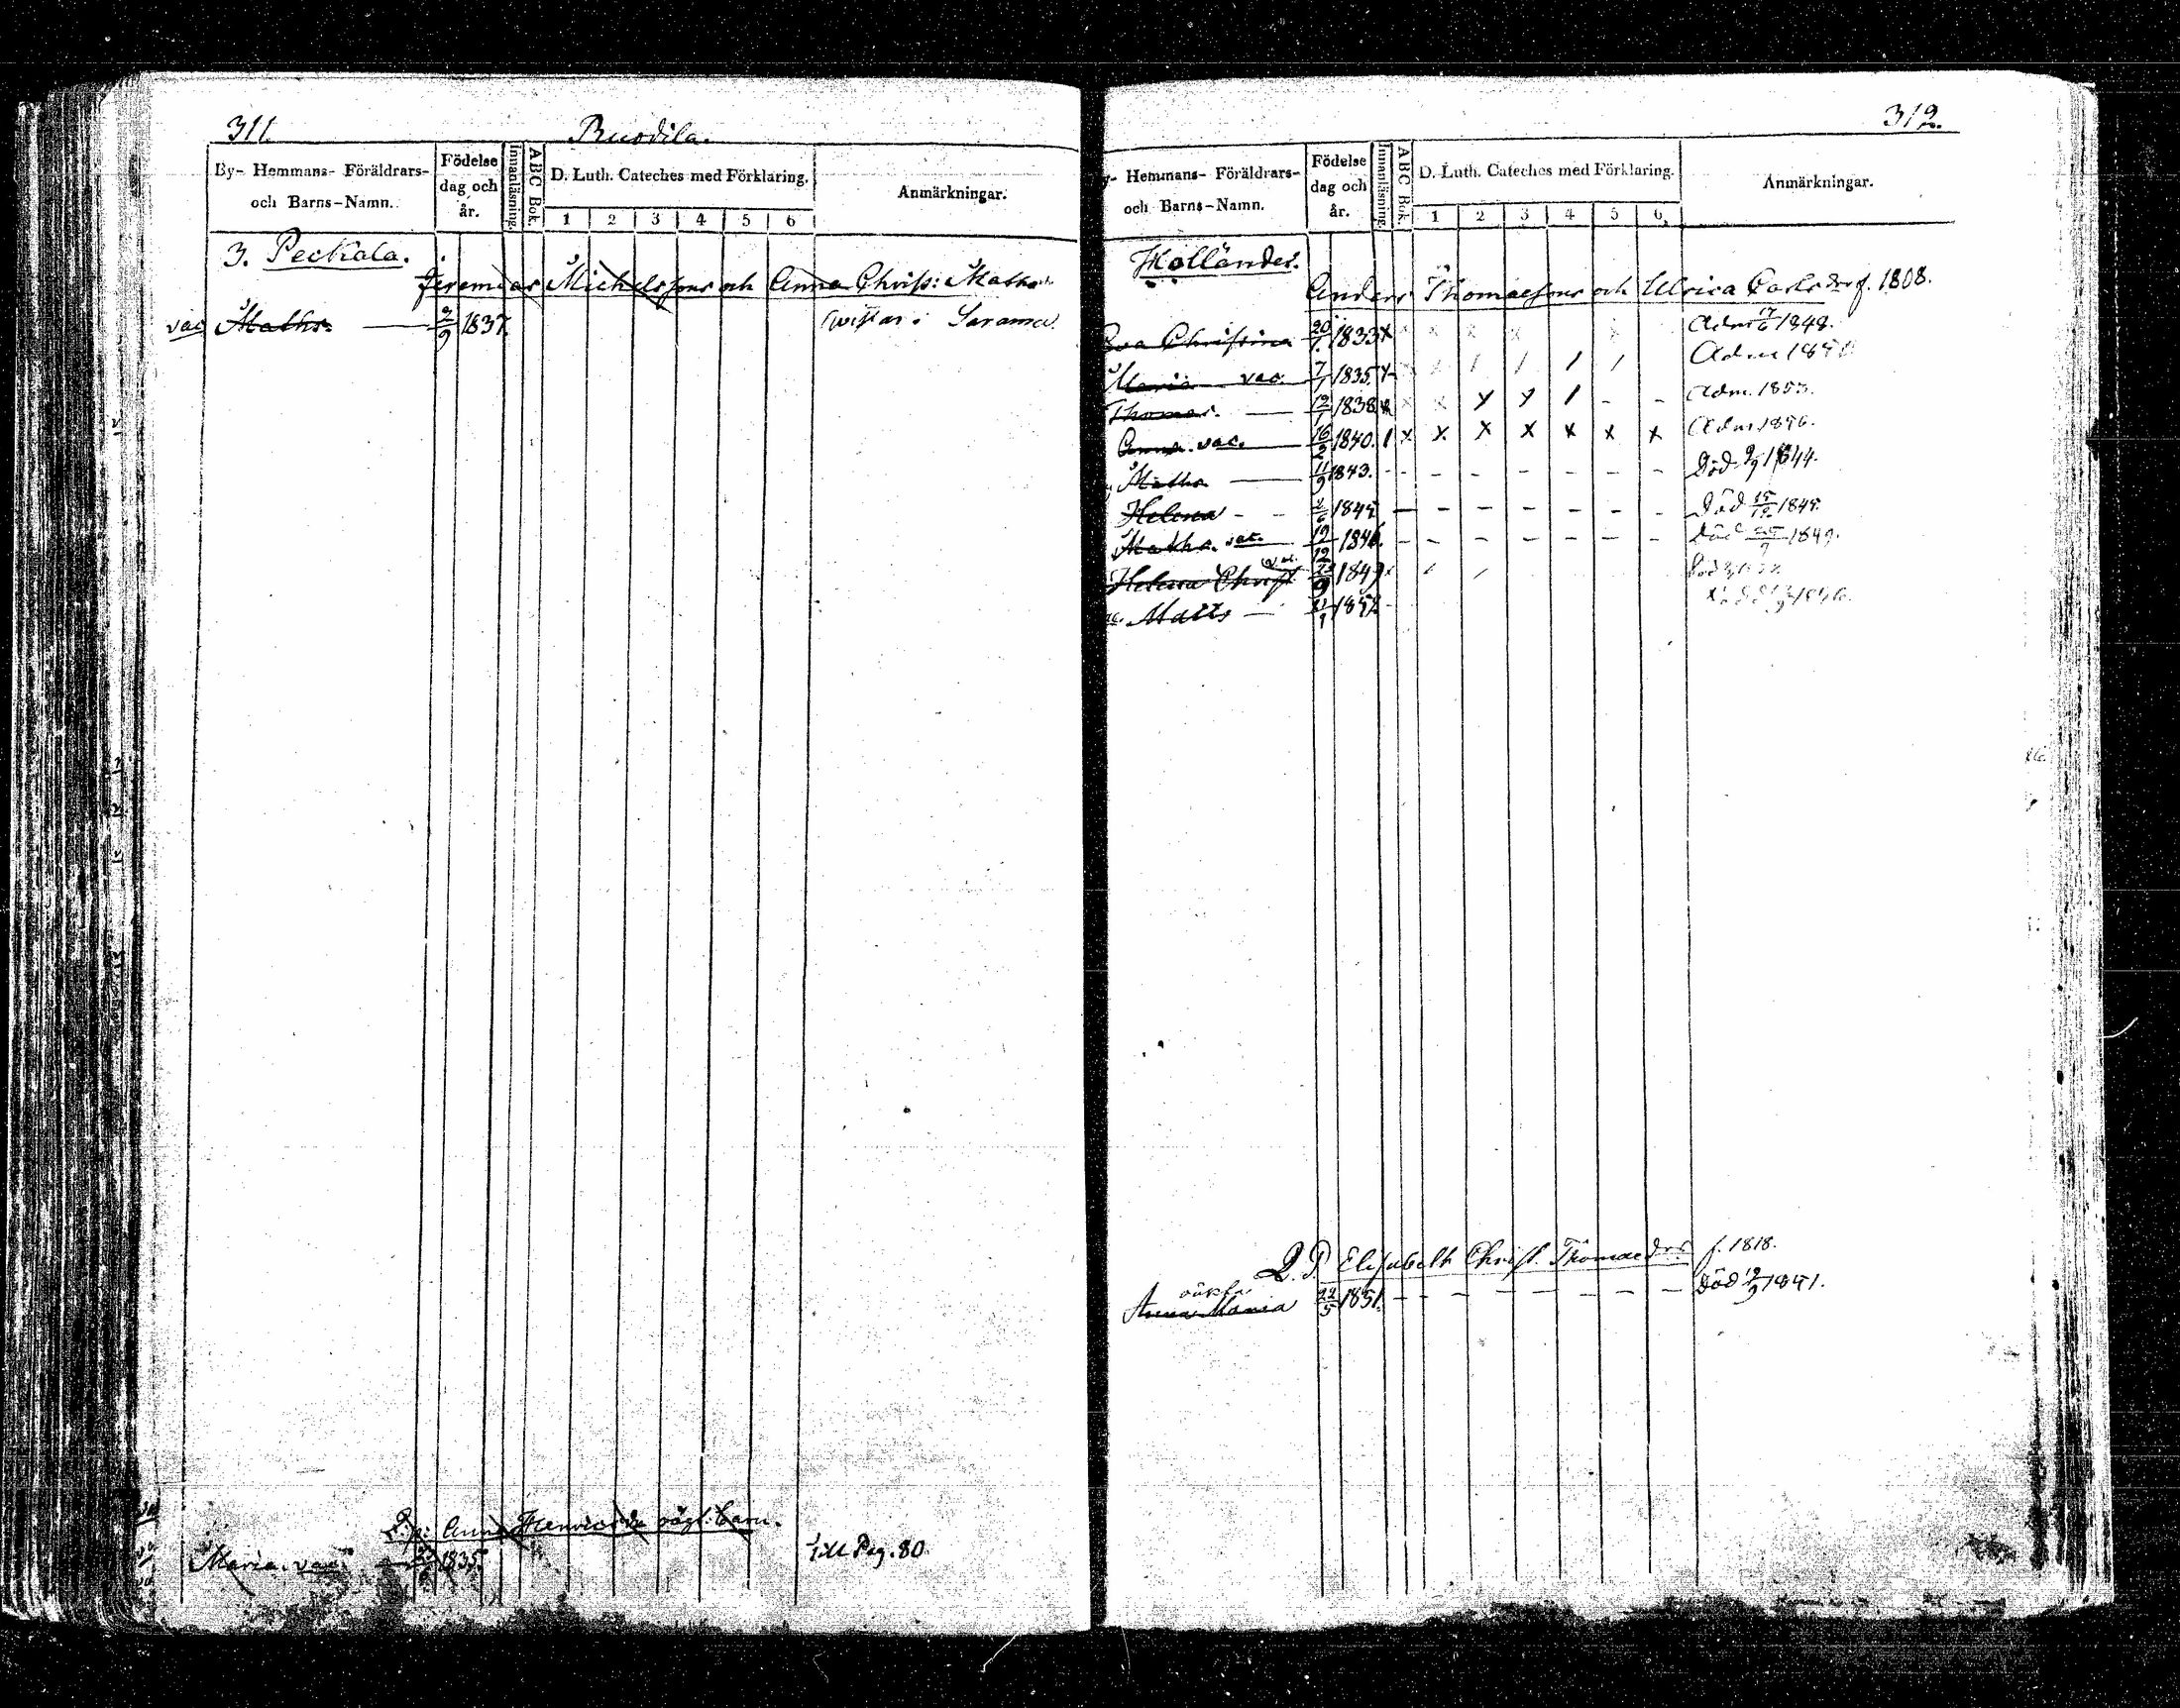 311. Ruodila.
By- Hemmans- Föräldrars- och Barns-Namn. Födelse dag och år. Innanläsning. ABC Bok. D. Luth. Cateches med Förklaring. 1 2 3 4 5 6 Anmärkningar.
3. Peckala.
Jeremias Michelsson och Anna Christ: Mathsdr
vac Maths. — 2/9 1837. wistas i Sarama
Q. p: Anna Henricsdr oägt: barn.
Maria. vac. 1835. Till Pag. 80.
312.
y- Hemmans- Föräldrars- och Barns-Namn. Födelse dag och år. Innanläsning. ABC Bok. D. Luth. Cateches med Förklaring. 1 2 3 4 5 6 Anmärkningar.
Holländer.
Anders Thomaesson och Ulrica Carlsdr f. 1808.
Eva Christina 20/1 1833 x x x x x x Adm 1848.
Maria vac. 7/1 1835. x / / / / Adm
Thomas. — 12/1 1838. x x x y y / - - Adm. 1853.
Anna. vac. 16/2 1840. / x x x x x x x Adm. 1856.
Maths — 11/9 1843. - - - - - - - Död 9/9 1844.
Helena - - 1845 - - - - - - - - Död 15/12 1845.
Maths. vac. 12/12 1846. - - - - - - - Död 25/9 1849.
Helena Christ vac. 1849 / /
Matts — 1852
Q. P. Elisabeth Christ. Thomaedr f. 1818.
oäkta
Anna Maria 22/5 1851. - - - - - - - - Död 12/9 1851.